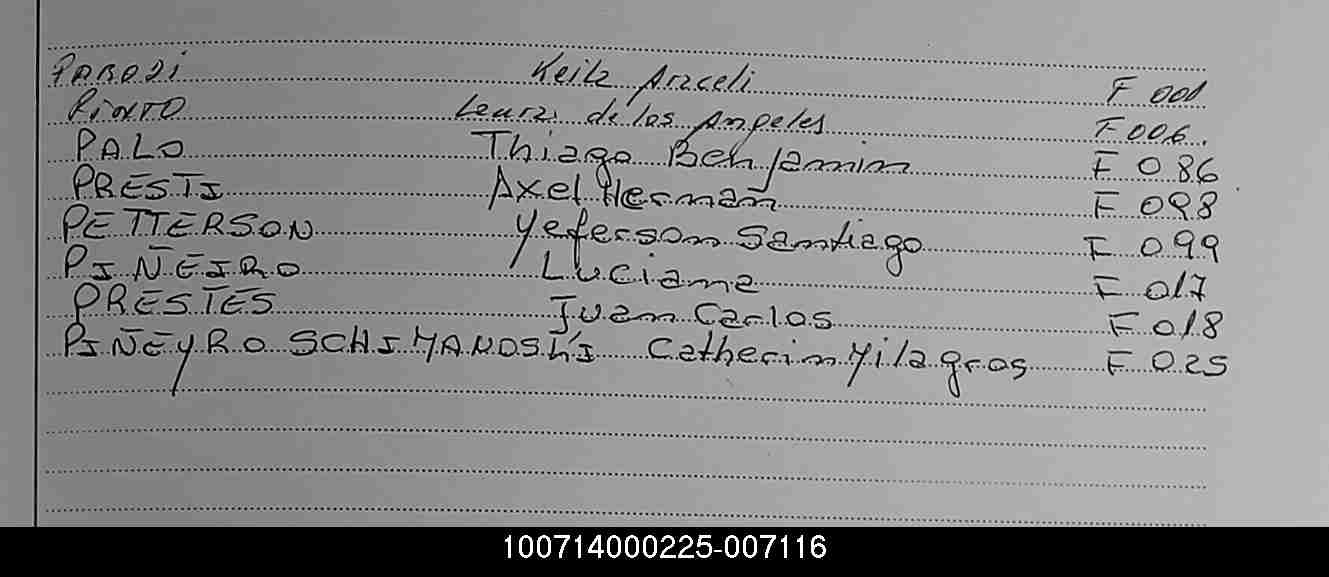 PARODI Keila Araceli F 001
PINTO Leura de los Angeles F 006.
PALO Thiago Benjamin F 086
PRESTI Axel Herman F 098
PETTERSON Yeferson Santiago F 099
PIÑEIRO Luciana F 017
PRESTES Juan Carlos F 018
PIÑEYRO SCHIMANOSKI Catherin Milagros F 025
100714000225-007116